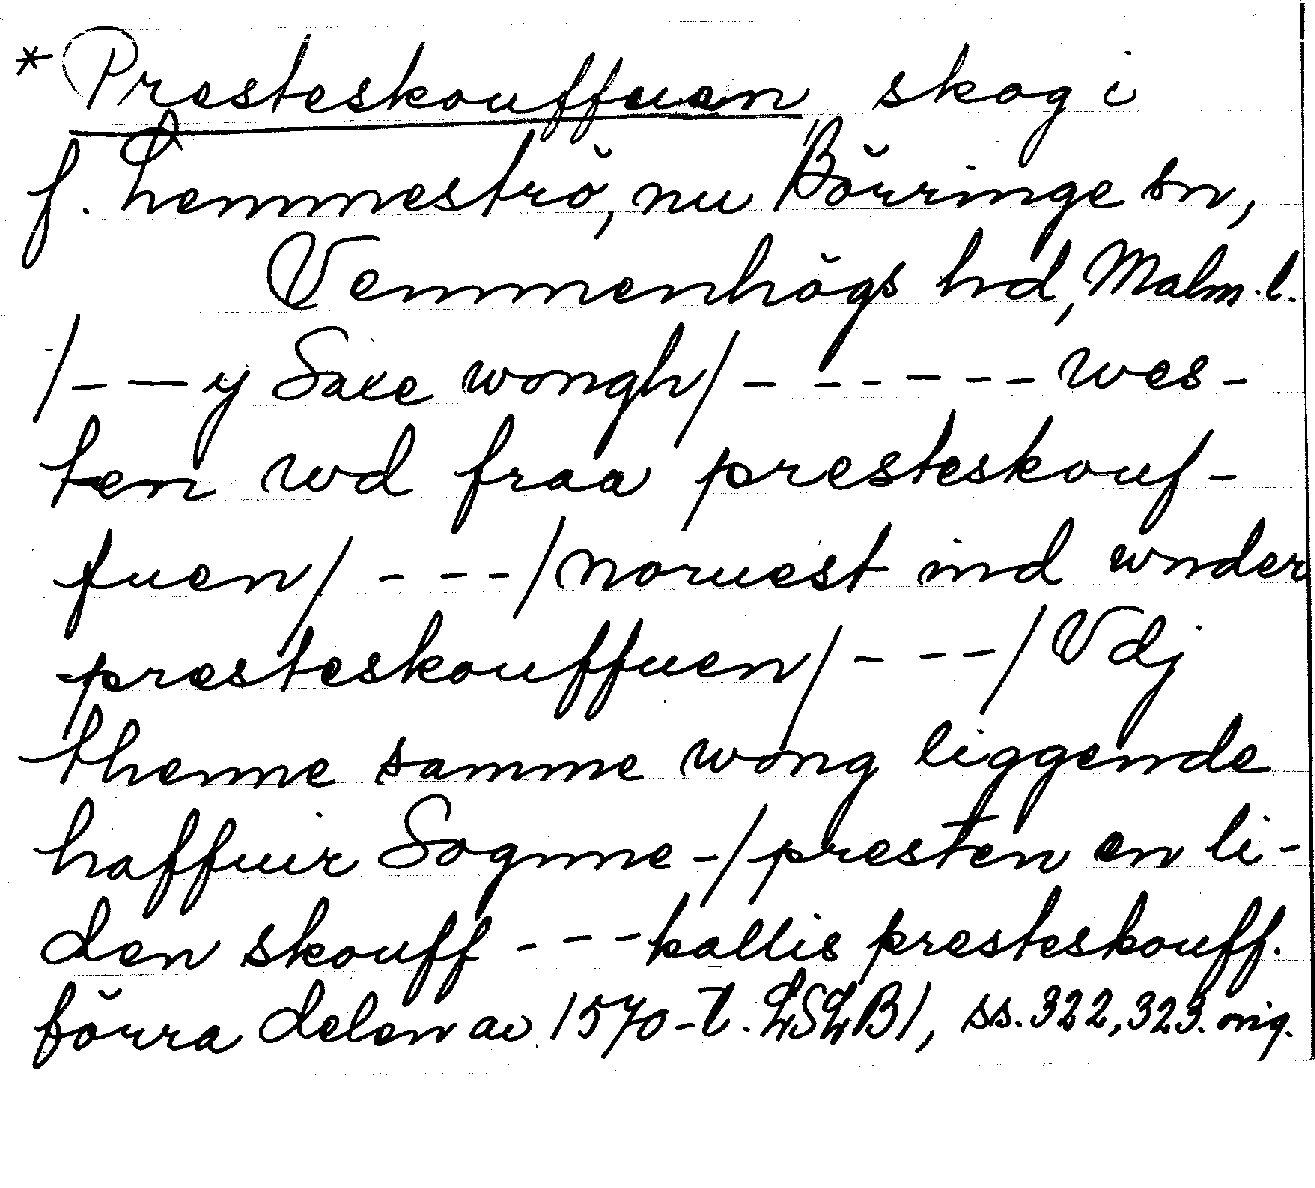 * Presteskouffuen skog i
f. Lemmeströ, nu Börringe sn,
Vemmenhögs hd, Malm. l.
/- — y Saxe wongh/ - - - - - - - wes-
ten wd fraa presteskouf-
fuen/ - - - /noruest ind wnder
presteskouffuen/ - - - /Vdj
thenne samme wong liggende
haffuir Sognne-/presten en li-
den skouff - - - kallis presteskouff.
förra delen av 1570-t. LSLB1, ss. 322, 323. orig.